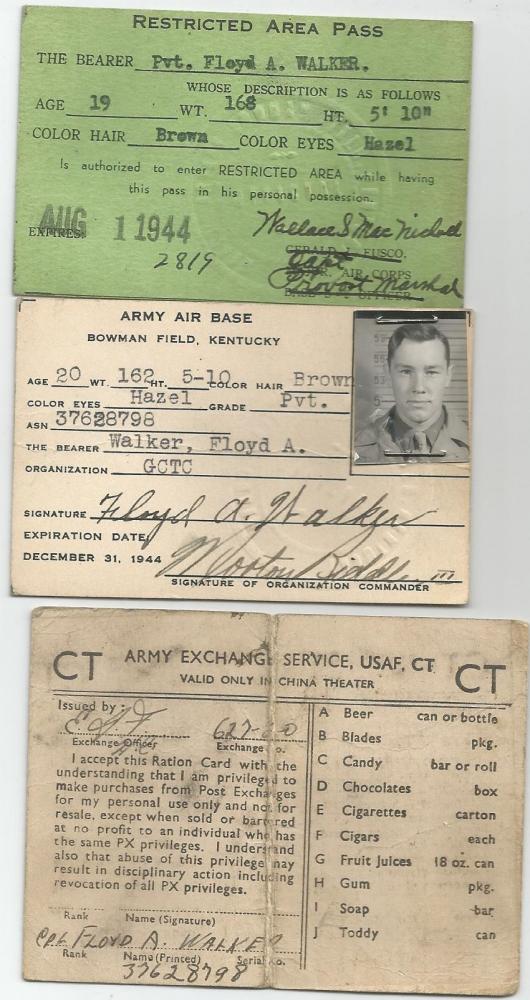 RESTRICTED AREA PASS
THE BEARER Pvt. Floyd A. WALKER.
WHOSE DESCRIPTION IS AS FOLLOWS
AGE 19 WT. 168 HT. 5' 10"
COLOR HAIR Brown COLOR EYES Hazel
Is authorized to enter RESTRICTED AREA while having
this pass in his personal possession.
AUG 1 1944
EXPIRES:
2819
Wallace S MacNichol
GERALD J. FUSCO,
Capt
AIR CORPS
Provost Marshal
OFFICER
ARMY AIR BASE
BOWMAN FIELD, KENTUCKY
AGE 20 WT. 162 HT. 5-10 COLOR HAIR Brown
COLOR EYES Hazel GRADE Pvt.
ASN 37628798
THE BEARER Walker, Floyd A.
ORGANIZATION GCTC
SIGNATURE Floyd A. Walker
EXPIRATION DATE
DECEMBER 31, 1944 Morton Biddle III
SIGNATURE OF ORGANIZATION COMMANDER
CT ARMY EXCHANGE SERVICE, USAF, CT CT
VALID ONLY IN CHINA THEATER
Issued by:
627-
Exchange Officer Exchange No.
I accept this Ration Card with the
understanding that I am privileged to
make purchases from Post Exchanges
for my personal use only and not for
resale, except when sold or bartered
at no profit to an individual who has
the same PX privileges. I understand
also that abuse of this privilege may
result in disciplinary action including
revocation of all PX privileges.
Rank Name (Signature)
CPL FLOYD A. WALKER
Rank Name (Printed) Serial No.
37628798
A Beer can or bottle
B Blades pkg.
C Candy bar or roll
D Chocolates box
E Cigarettes carton
F Cigars each
G Fruit Juices 18 oz. can
H Gum pkg.
I Soap bar
J Toddy can